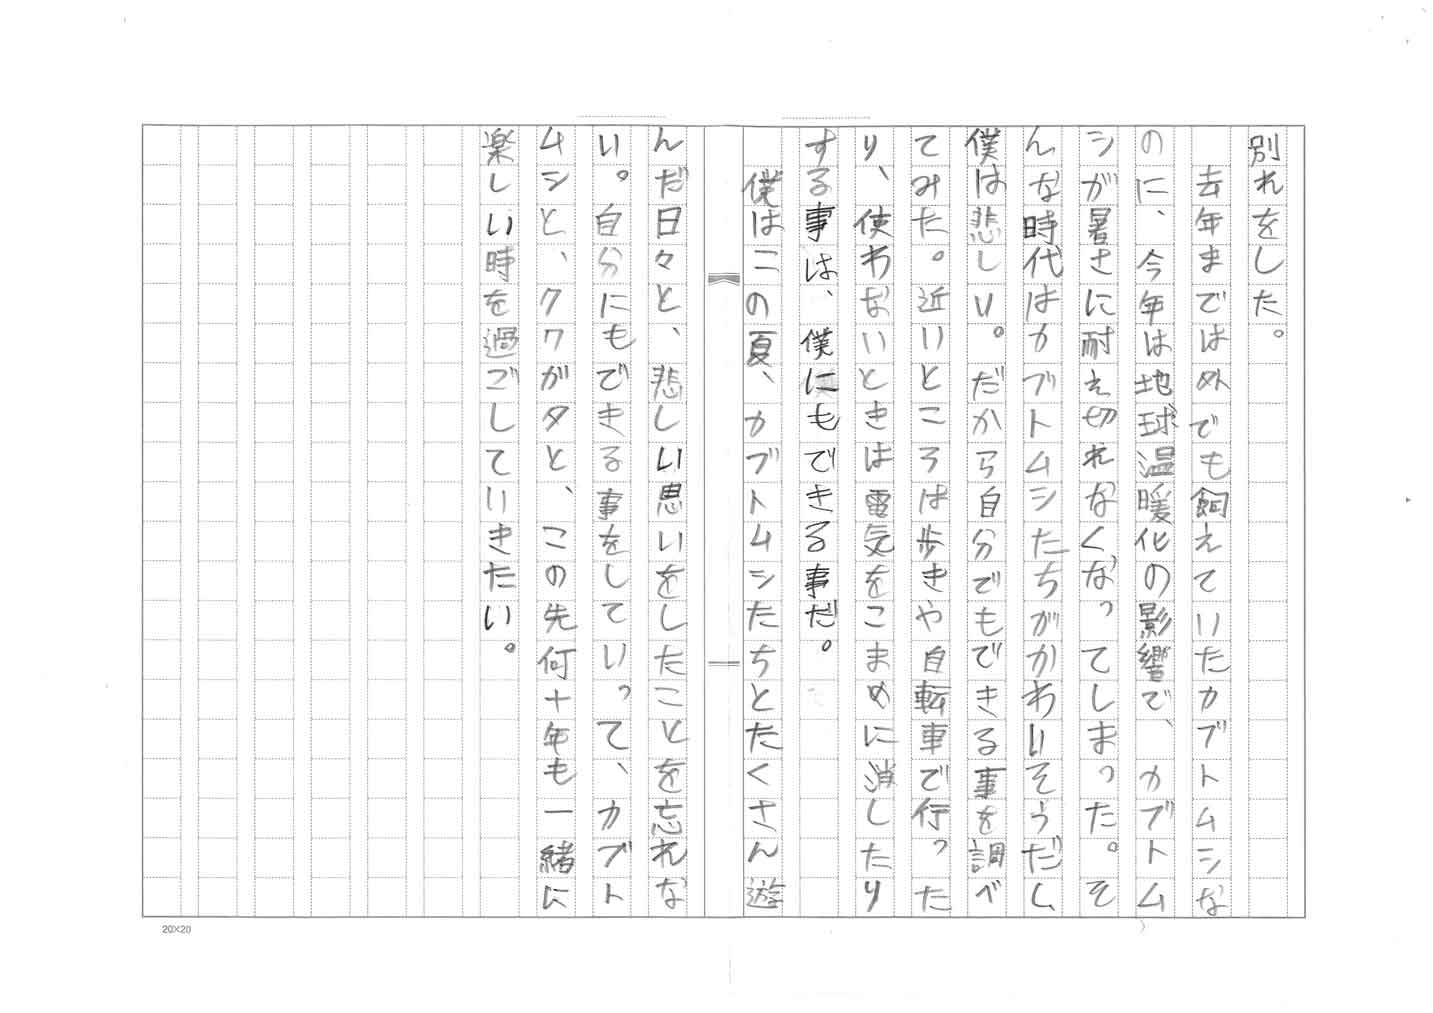 別れをした。
去年までは外でも飼えていたカブトムシな
のに、今年は地球温暖化の影響で、カブトム
シが暑さに耐え切れなくなってしまった。そ
んな時代はカブトムシたちがかわいそうだし、
僕は悲しい。だから自分でもできる事を調べ
てみた。近いところは歩きや自転車で行った
り、使わないときは電気をこまめに消したり
する事は、僕にもできる事だ。
僕はこの夏、カブトムシたちとたくさん遊
んだ日々と、悲しい思いをしたことを忘れな
い。自分にもできる事をしていって、カブト
ムシと、クワガタと、この先何十年も一緒に
楽しい時を過ごしていきたい。
20×20